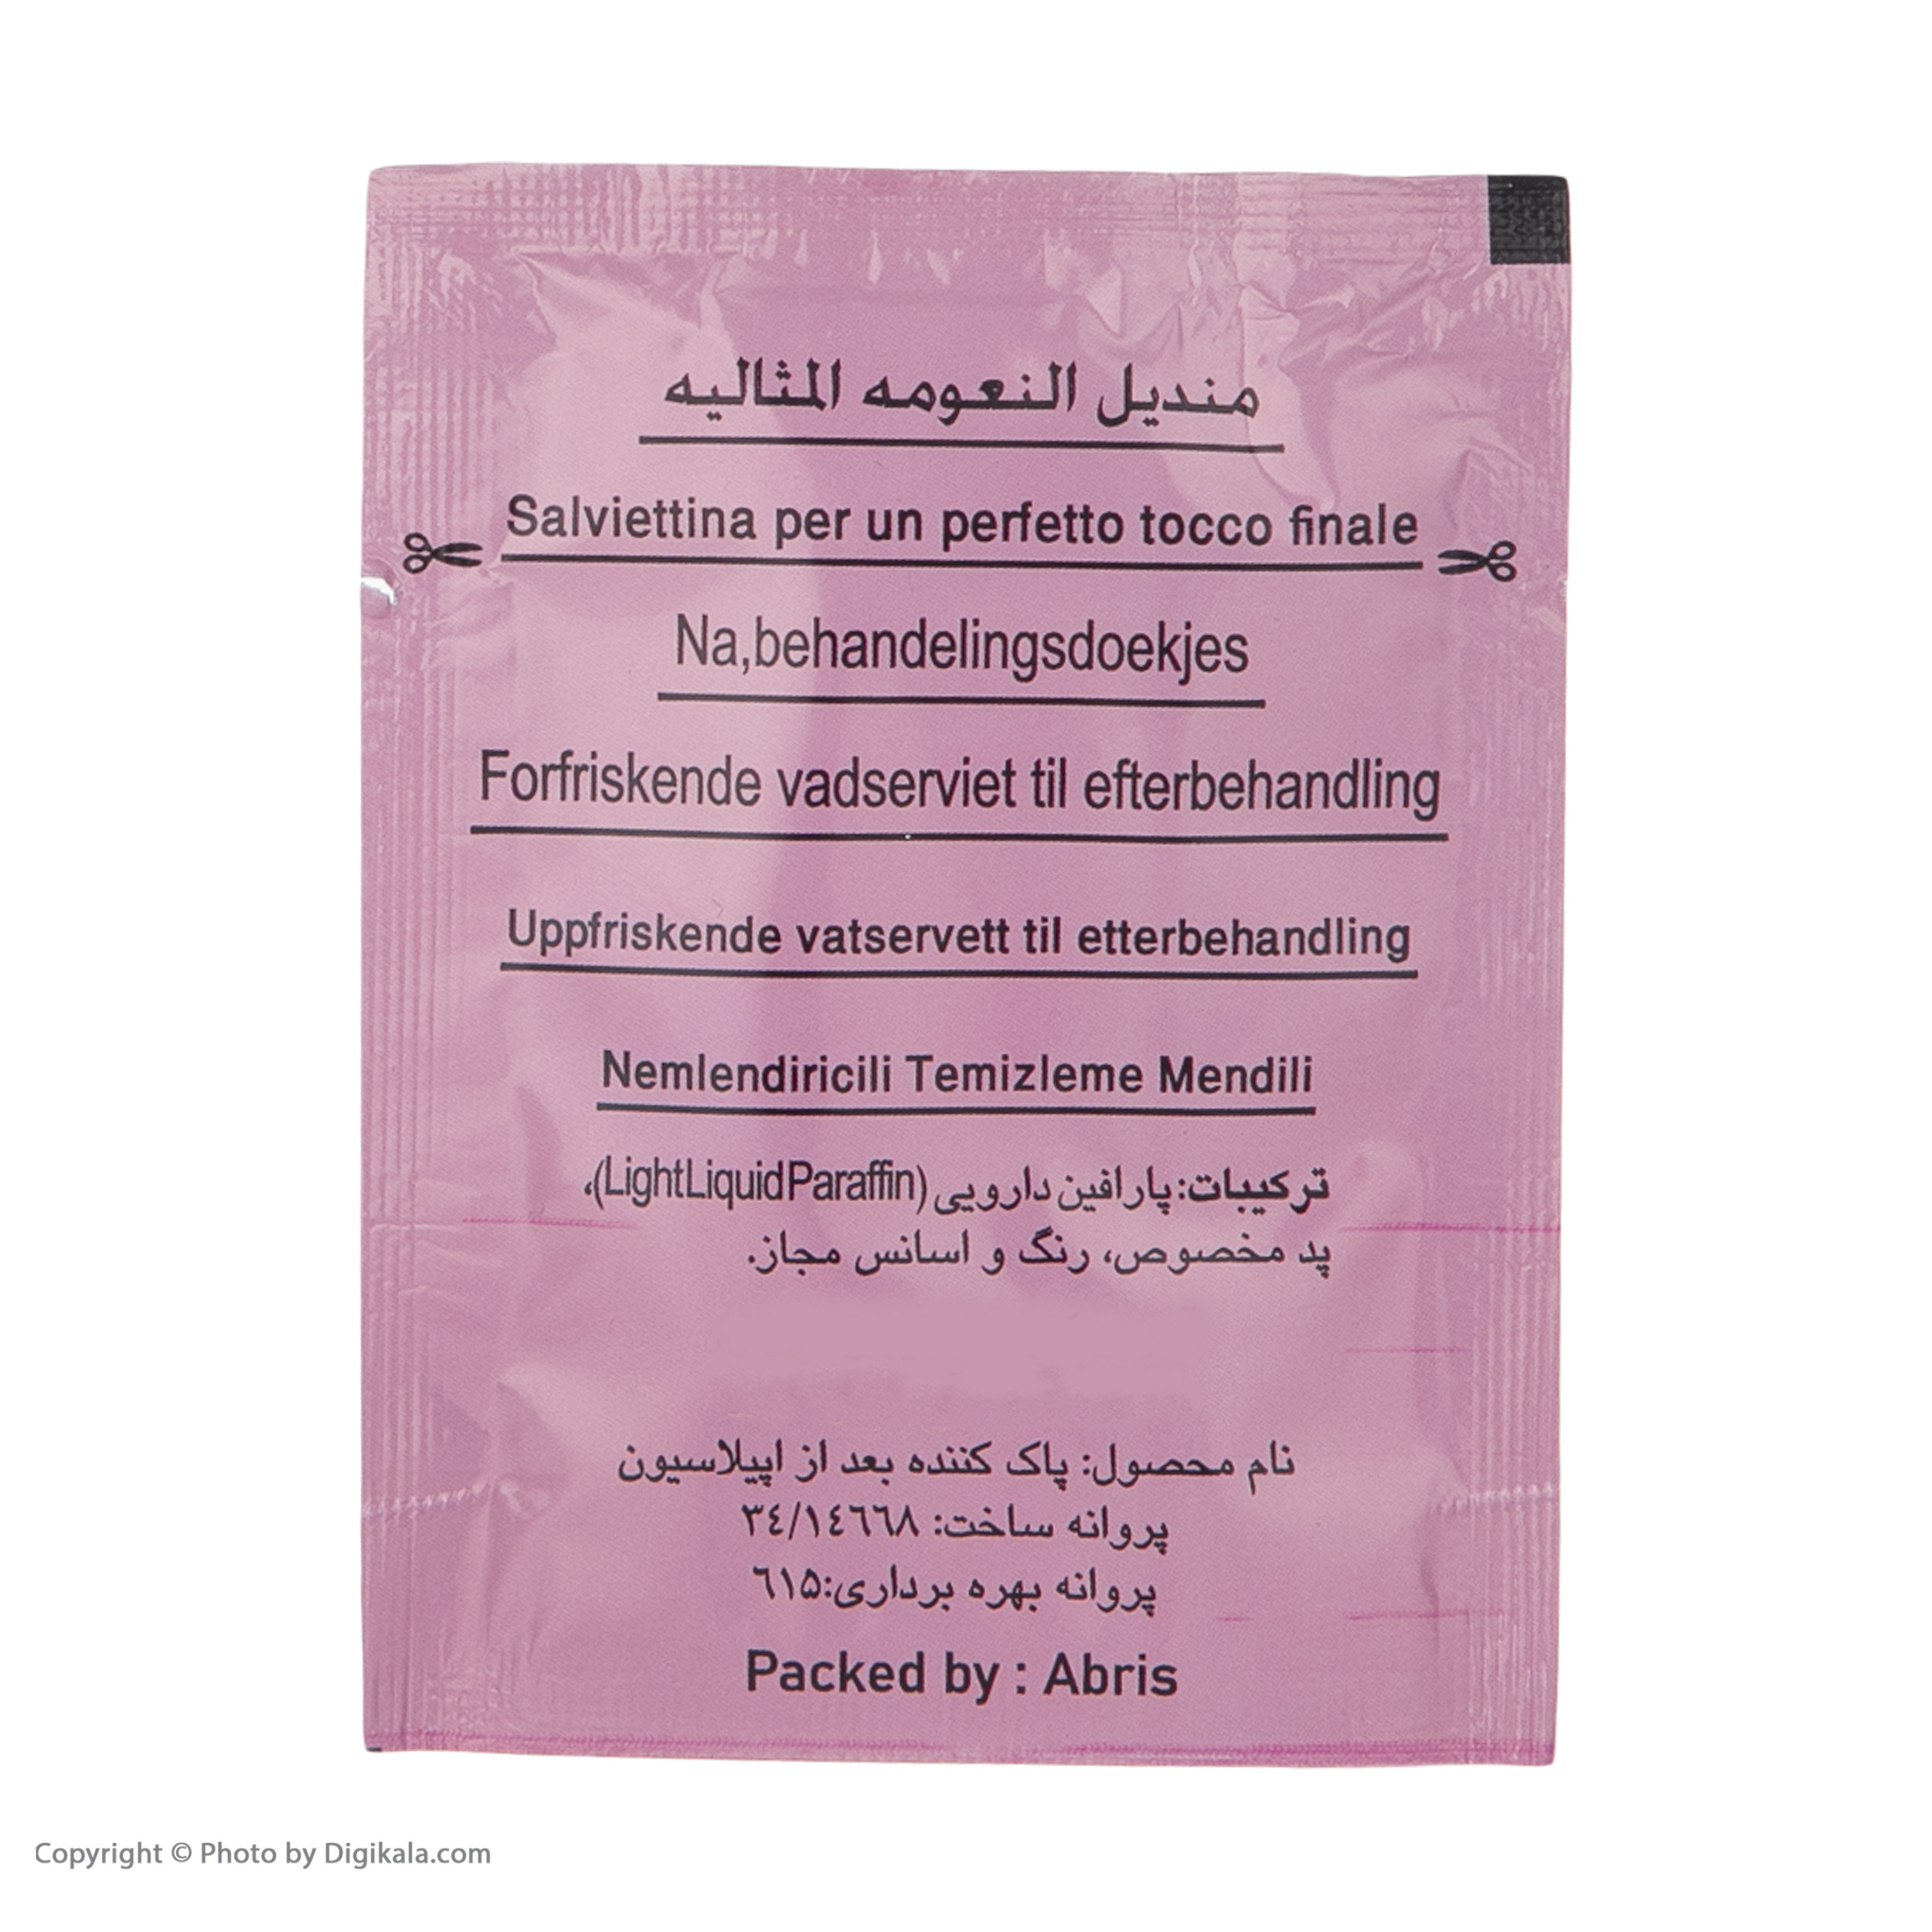 منديل النعومه المثاليه
Salviettina per un perfetto tocco finale
Na,behandelingsdoekjes
Forfriskende vadserviet til efterbehandling
Uppfriskende vatservett til etterbehandling
Nemlendiricili Temizleme Mendili
ترکیبات: پارافین دارویی (LightLiquidParaffin)،
پد مخصوص، رنگ و اسانس مجاز.
نام محصول: پاک کننده بعد از اپیلاسیون
پروانه ساخت: ٣٤/١٤٦٦٨
پروانه بهره برداری:٦١٥
Packed by : Abris
Copyright © Photo by Digikala.com